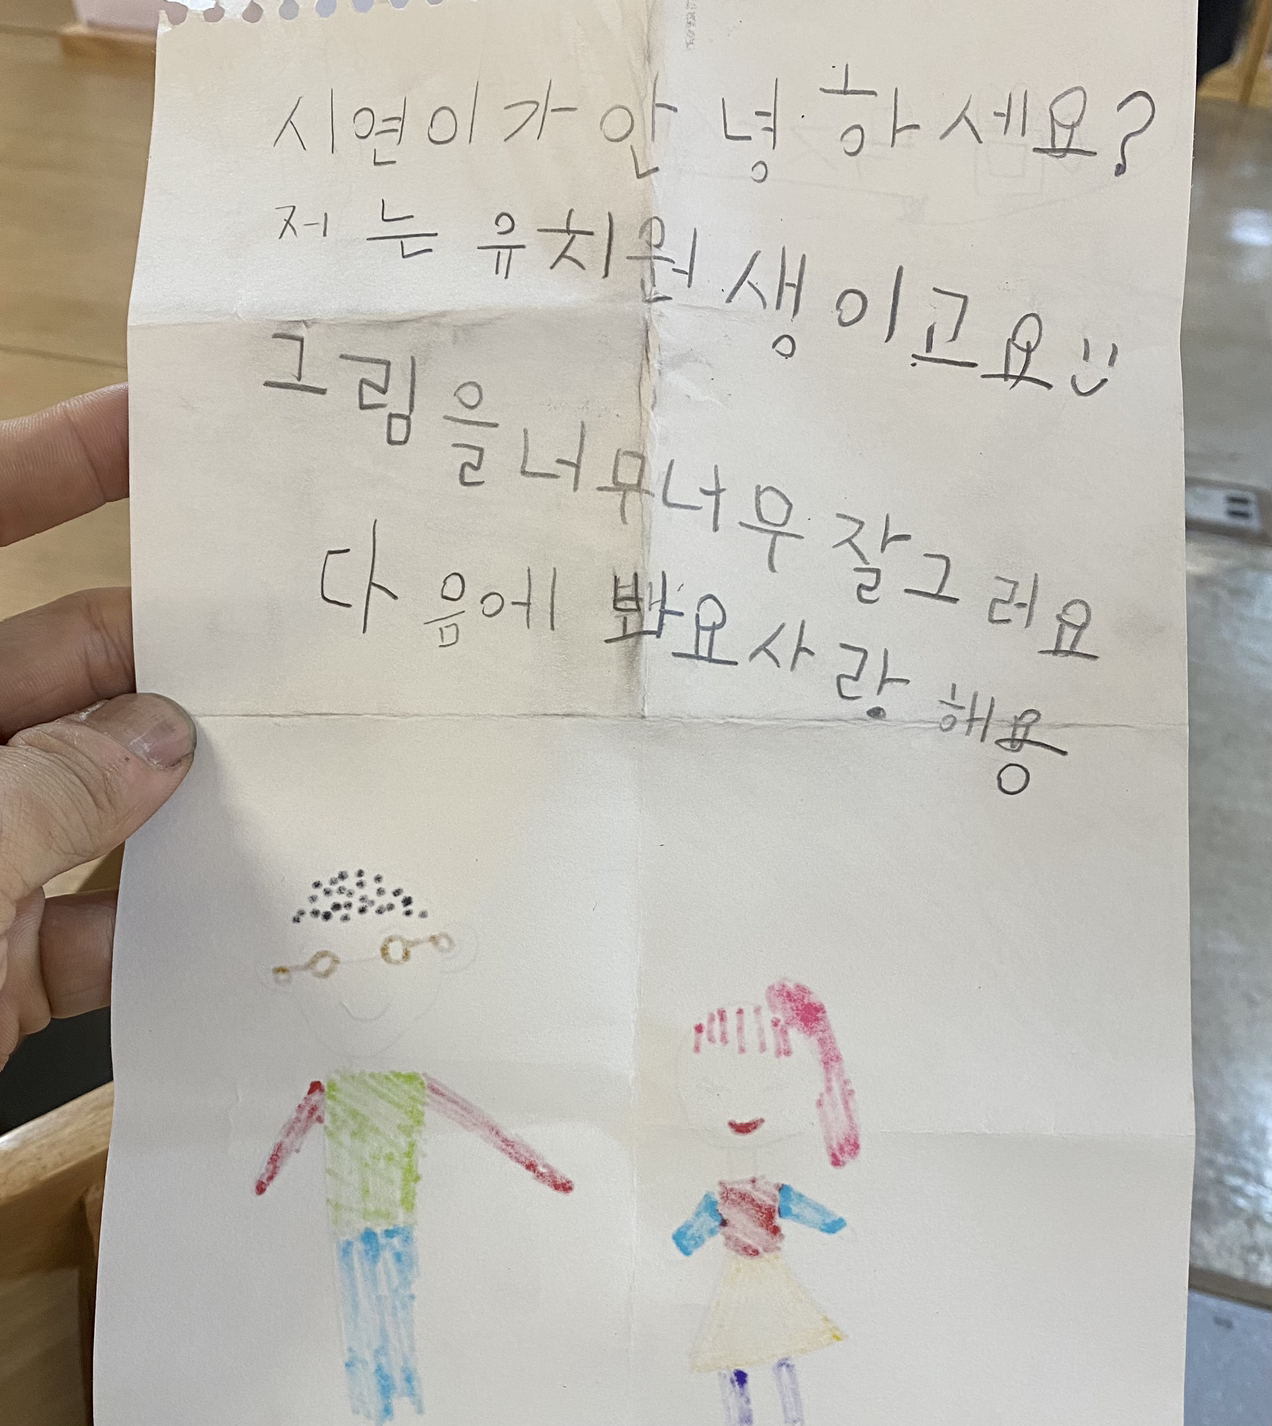 시연이가 안녕하세요?
저는 유치원생이고요
그림을 너무너무 잘그려요
다음에 봐요 사랑해용